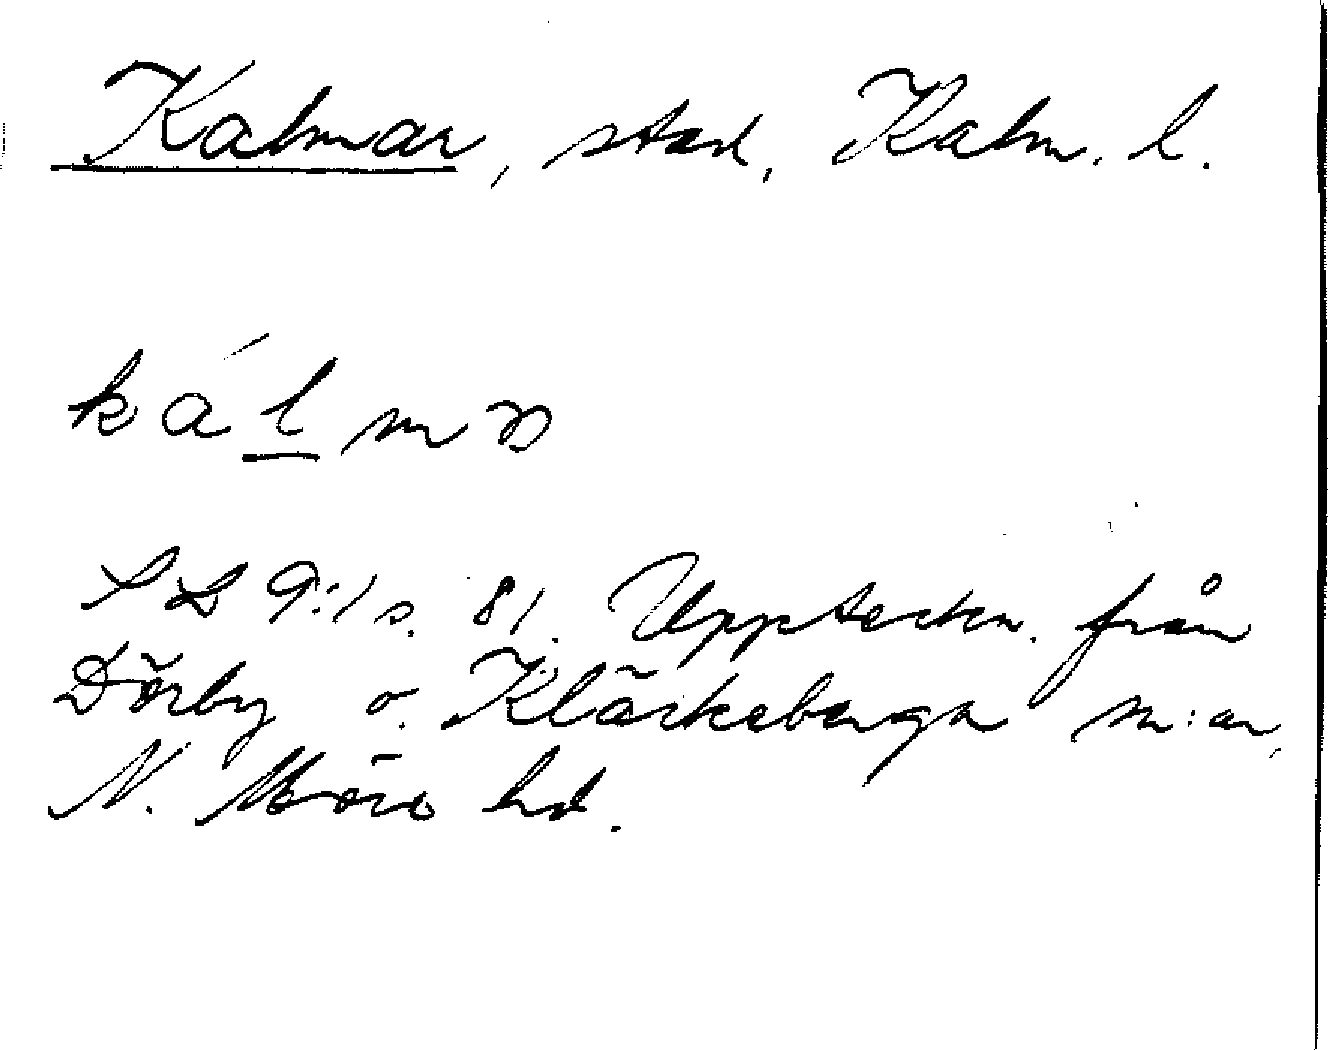 Kalmar, stad, Kalm. l.
kálmꝛ
SL 9:1 s. 81. Uppteckn. från
Dörby o. Kläckeberga sn:ar,
N. Möre hd.